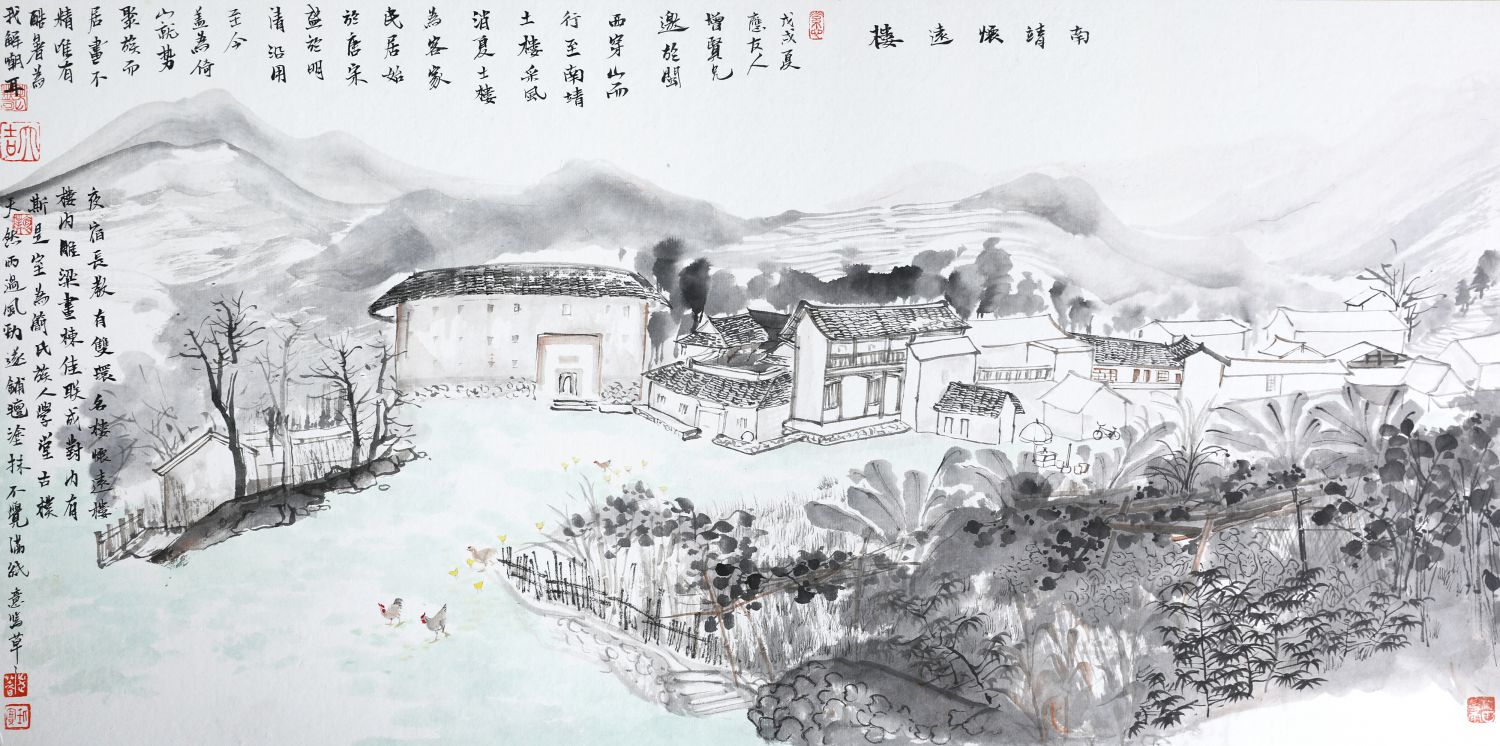 南靖懷遠樓
戊戌夏
應友人
增賢兄
邀於閩
西穿山而
行至南靖
土楼采風
消夏土楼
為客家
民居始
於唐宋
盛於明
清沿用
至今
盖為倚
山就势
聚族而
居畫不
精唯有
酷暑為
我解嘲耳
夜宿長教有雙環名楼懷遠楼
楼内雕梁畫棟佳联成對内有
斯是室為簡氏族人學堂古樸
天然雨過風勁遂鋪氊塗抹不覺滿紙
草
大吉